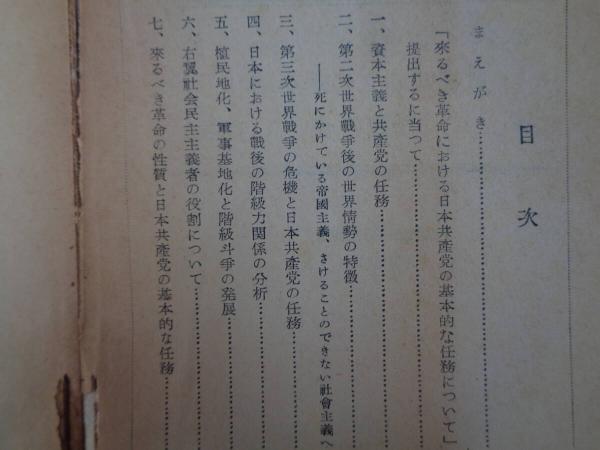 目次
まえがき
「來るべき革命における日本共產党の基本的な任務について」
提出するに当つて
一、資本主義と共產党の任務
二、第二次世界戰爭後の世界情勢の特徴
――死にかけている帝國主義、さけることのできない社會主義へ
三、第三次世界戰爭の危機と日本共產党の任務
四、日本における戰後の階級力関係の分析
五、植民地化、軍事基地化と階級斗爭の発展
六、右翼社会民主主義者の役割について
七、來るべき革命の性質と日本共產党の基本的な任務